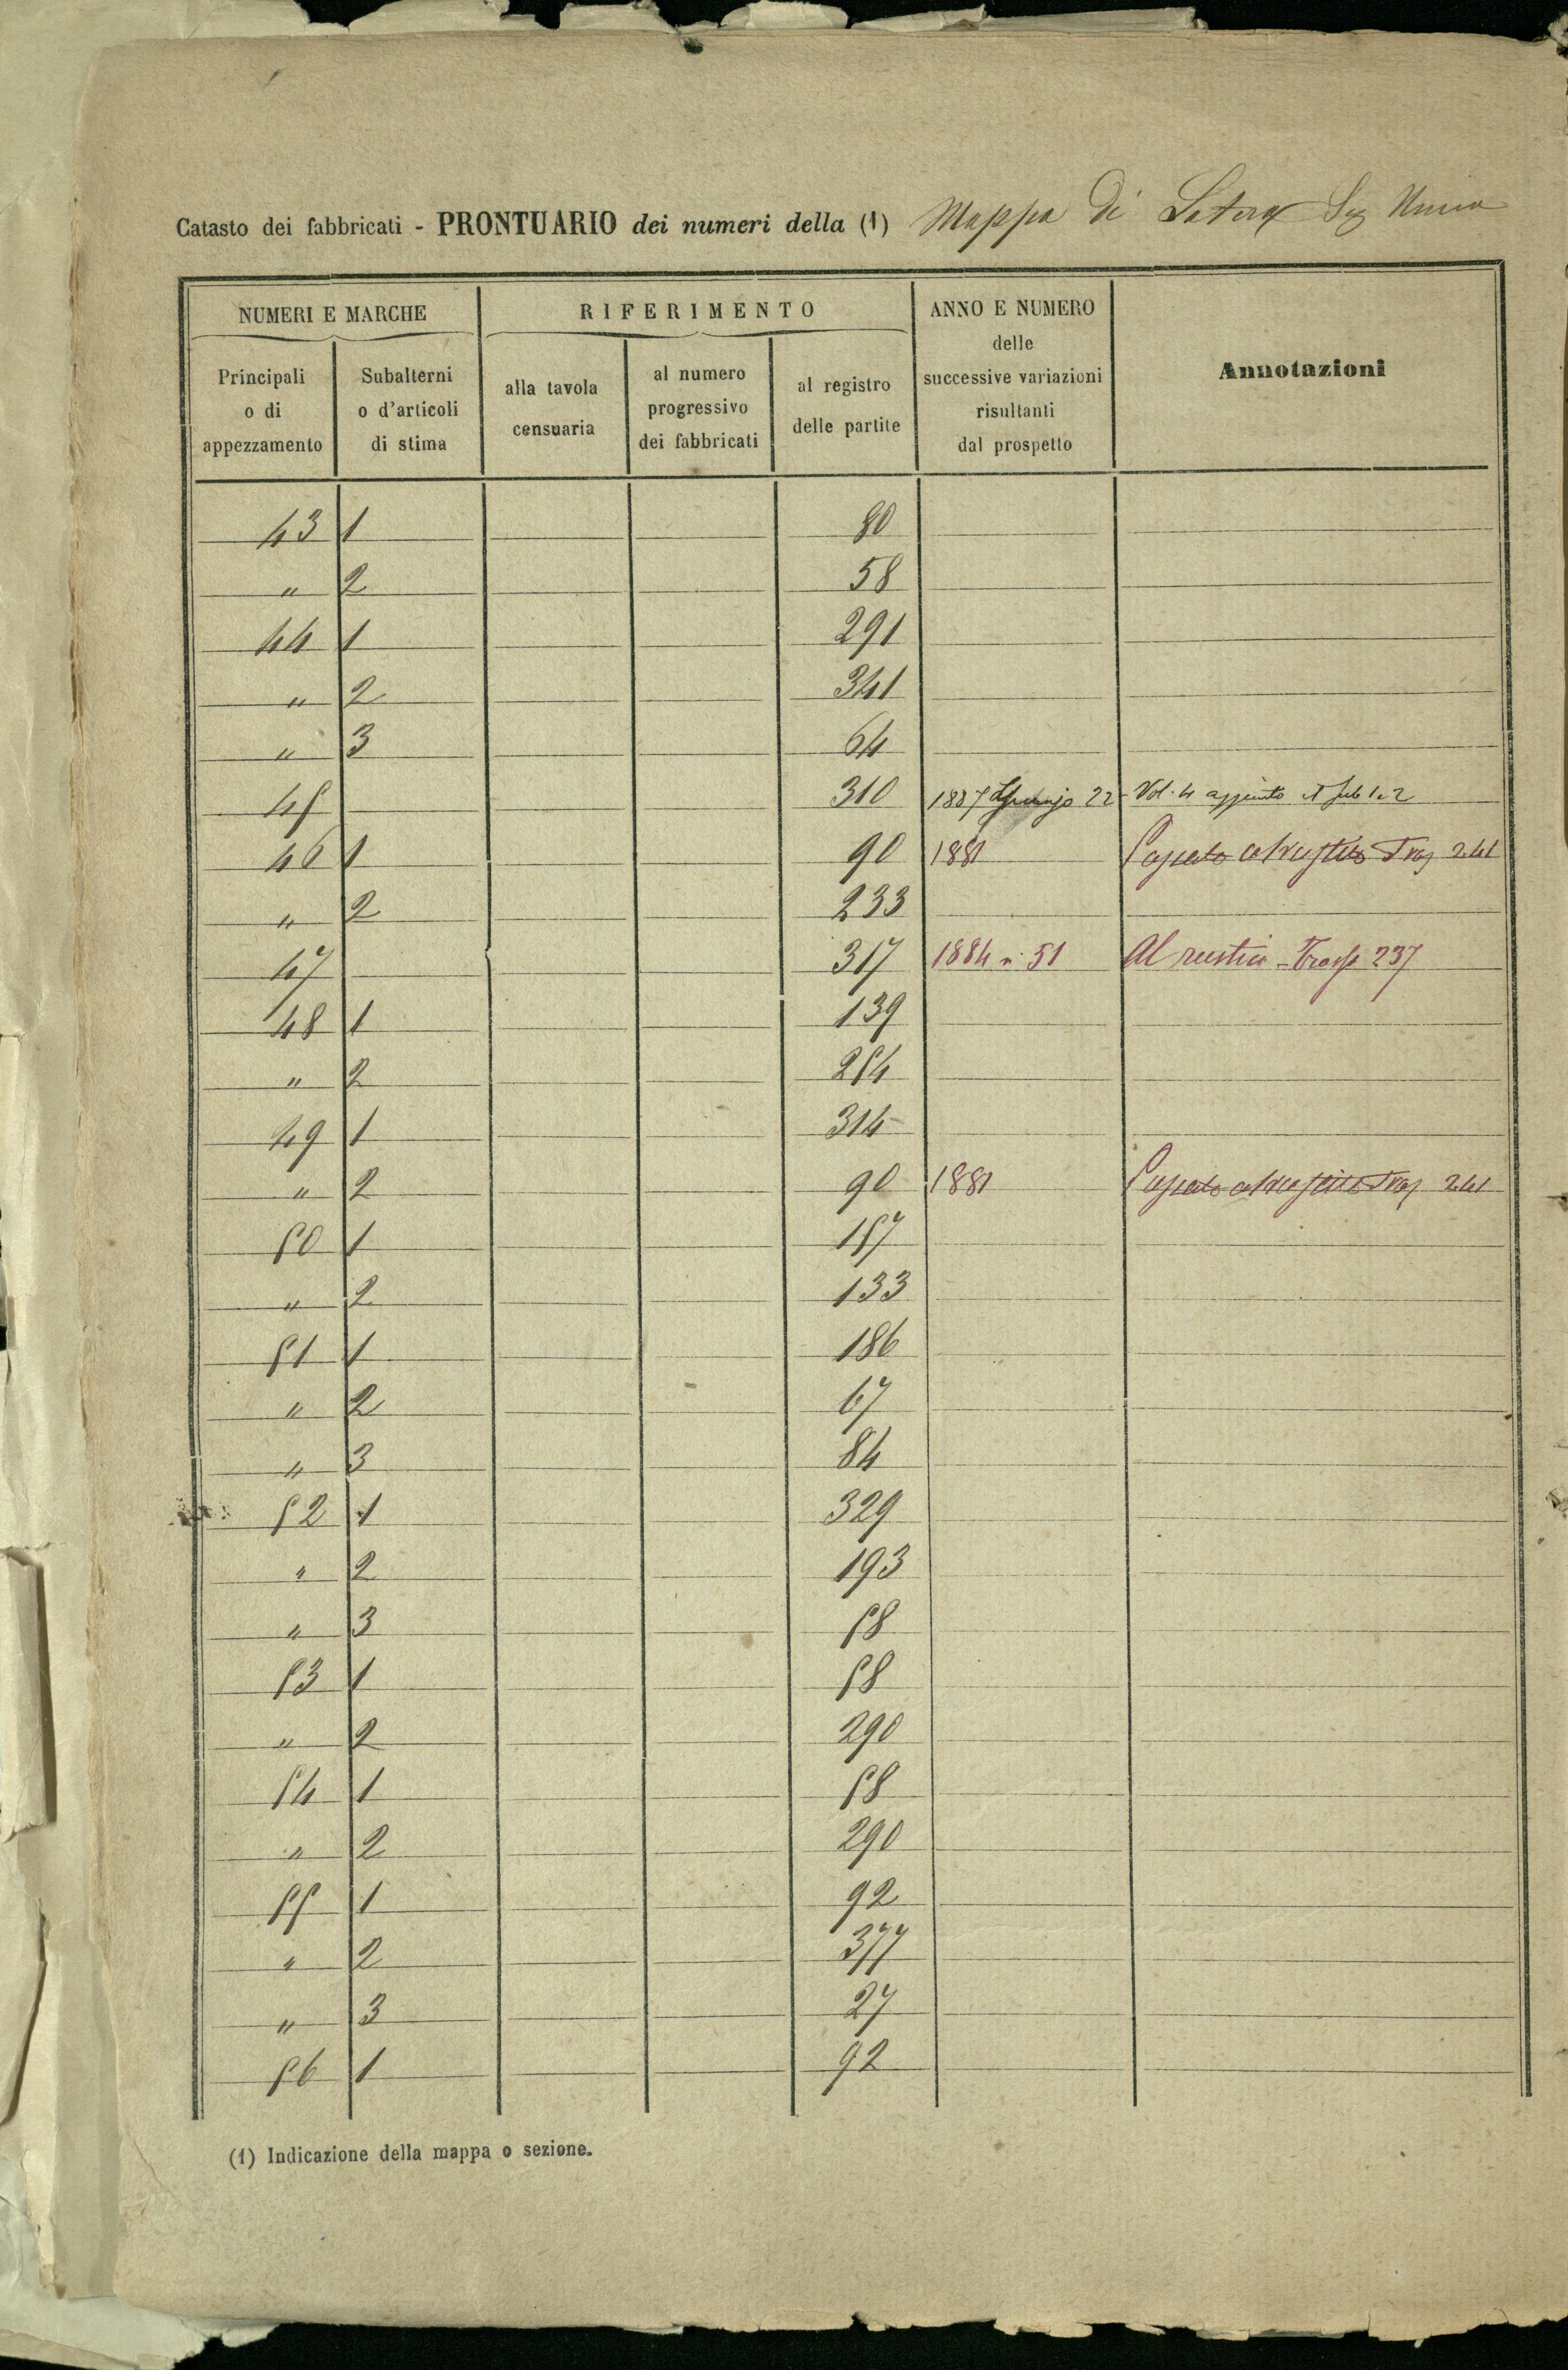 Catasto dei fabbricati - PRONTUARIO dei numeri della (1) Mappa di Latera Sez Unica
NUMERI E MARCHE
RIFERIMENTO
ANNO E NUMERO
delle
successive variazioni
risultanti
dal prospetto
Annotazioni
Principali
o di
appezzamento
Subalterni
o d'articoli
di stima
alla tavola
censuaria
al numero
progressivo
dei fabbricati
al registro
delle partite
43 1 80
" 2 58
44 1 291
" 2 341
" 3 64
45 310 1887 22 Vol. 4 aggiunto Sub 1.2
46 1 90 1881 Passato al rustico Tras 241
" 2 233
47 317 1884 n. 51 Al rustico - Trasp 237
48 1 139
" 2 254
49 1 314
" 2 90 1881 Passato al rustico Tras 241
50 1 157
" 2 133
51 1 186
" 2 67
" 3 84
52 1 329
" 2 193
" 3 58
53 1 58
" 2 290
54 1 58
" 2 290
55 1 92
" 2 377
" 3 27
56 1 92
(1) Indicazione della mappa o sezione.